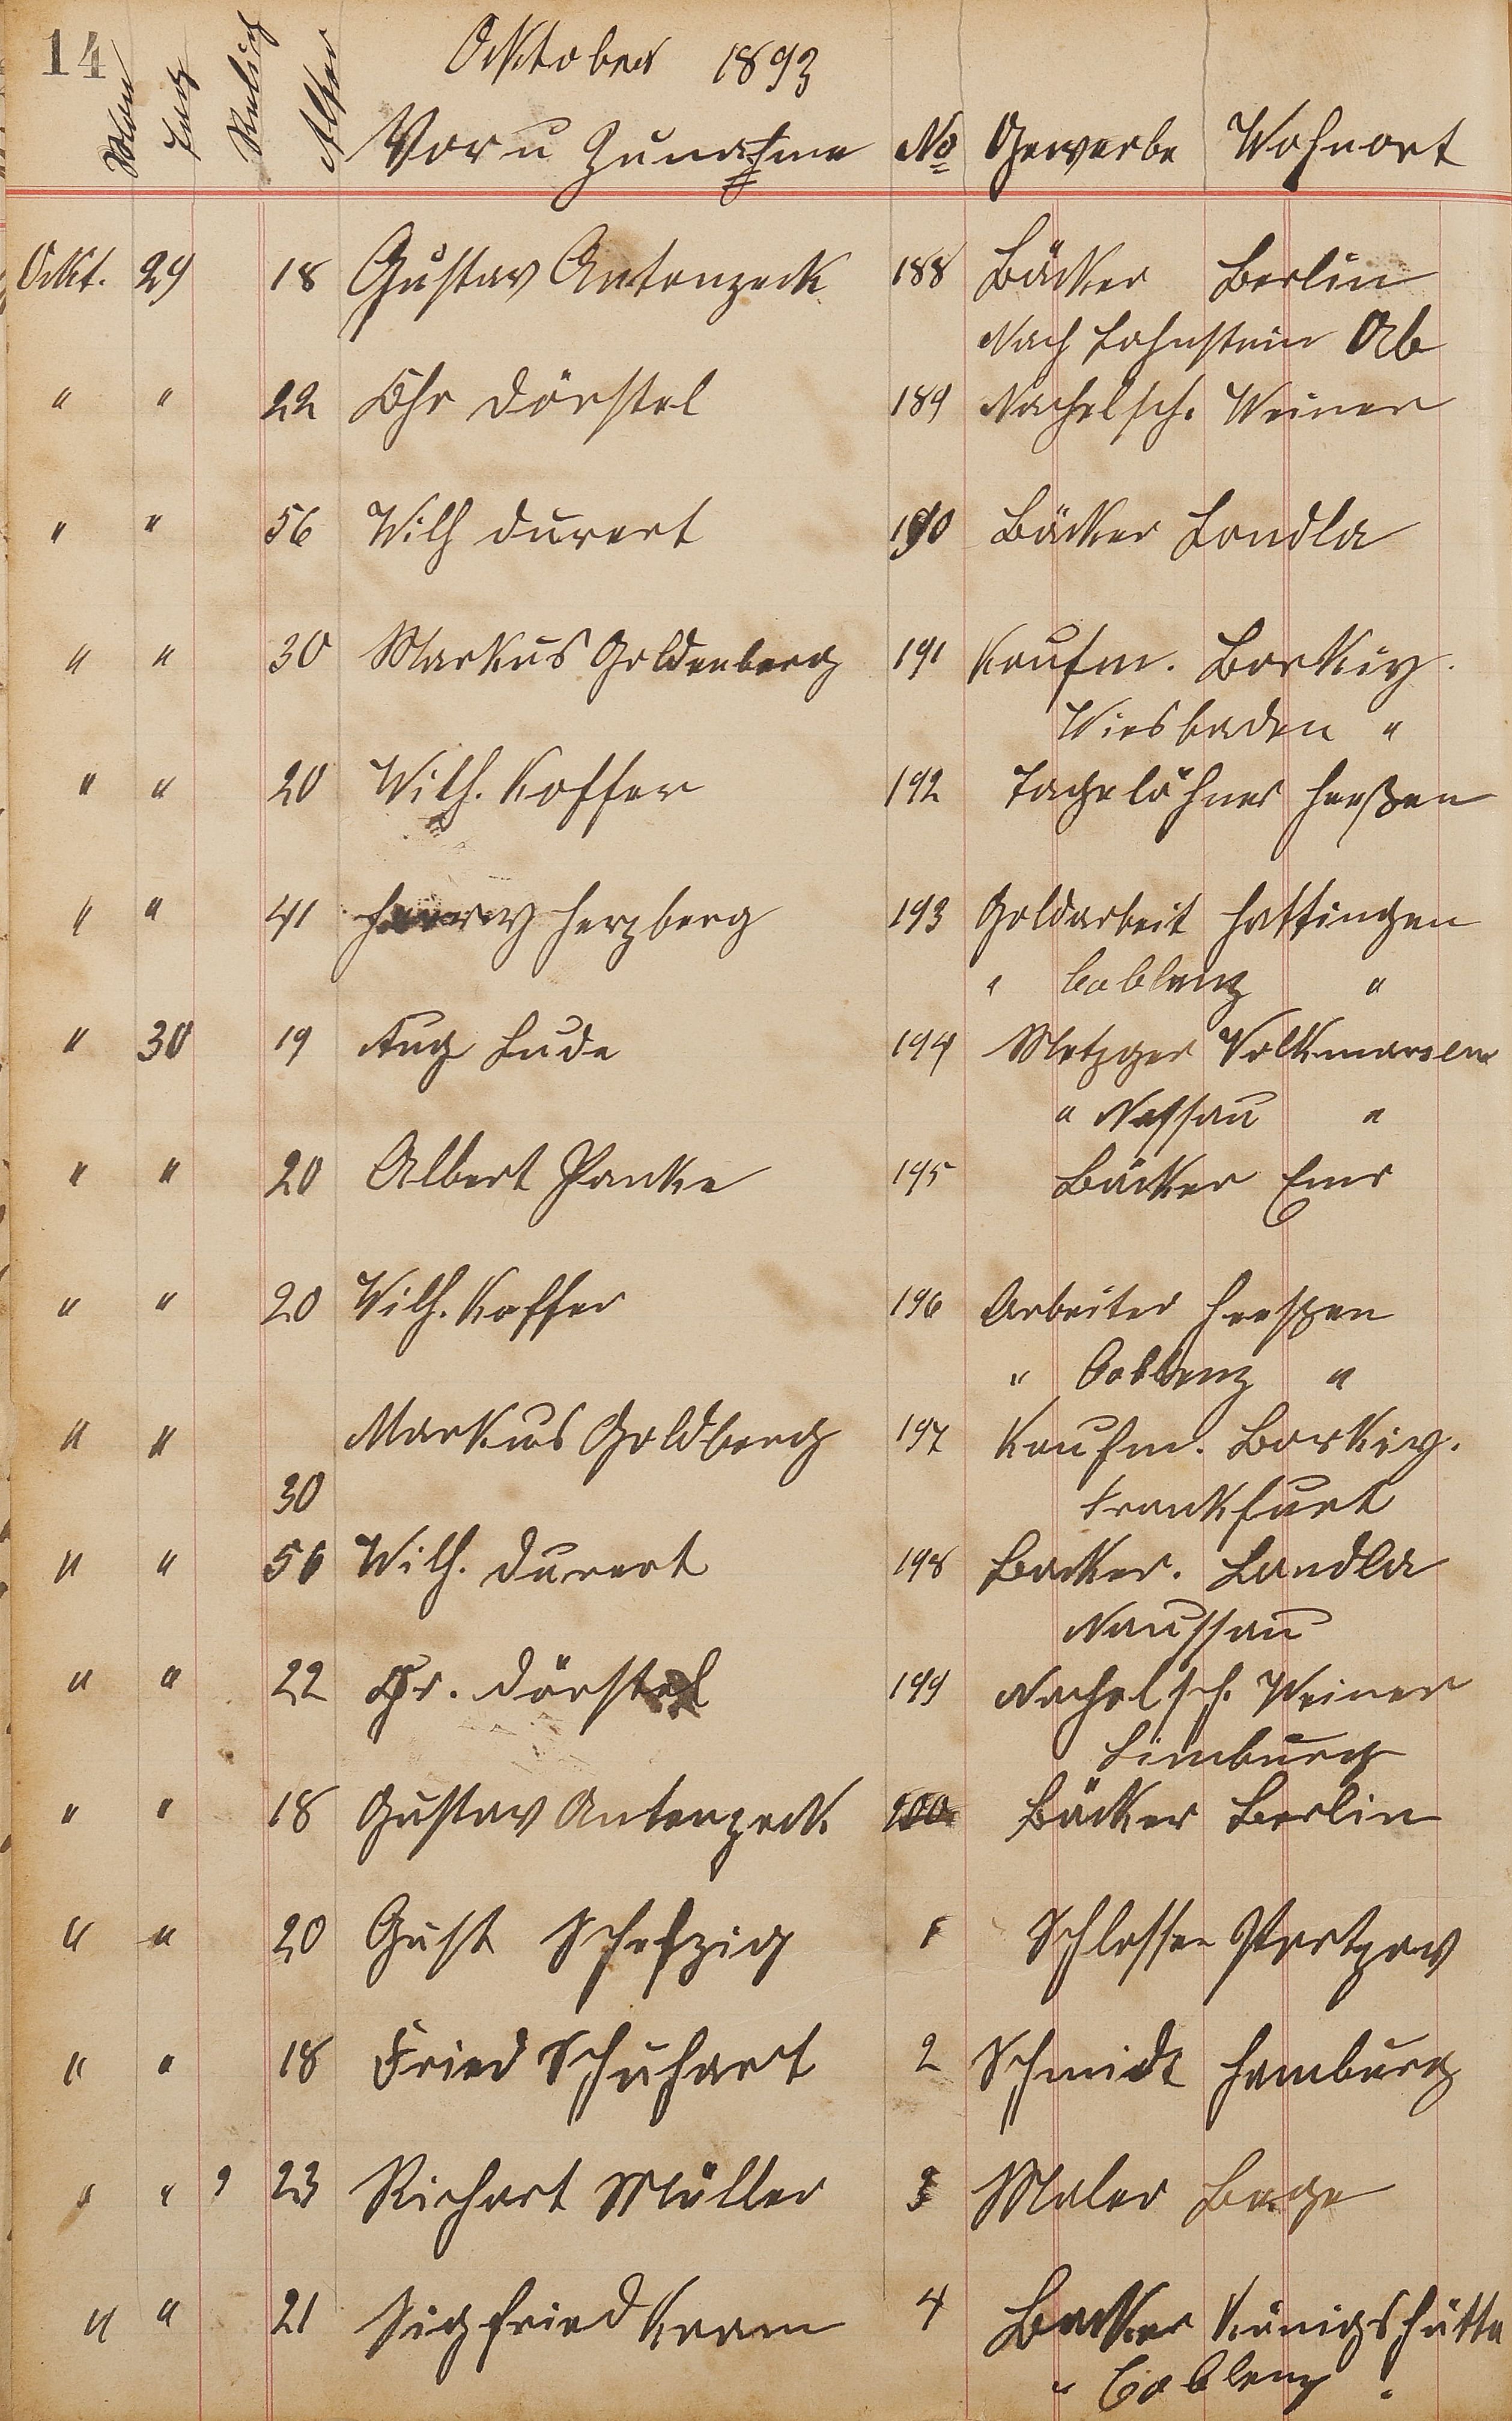 14
Oktober 1893
Mon Tag Relig Alter Vor u Zunahme No Gewerbe Wohnort
Okt. 29 18 Gustav Antonzeck 188 Bäcker Berlin
Nach Lahnstein Ab
" " 22 Chr Dörstel 189 Nachelsch. Weiner
" " 56 Wilh Durert 190 Bäcker Landla
" " 30 Markus Goldenberg 191 Kaufm. Borkig.
Wiesbaden "
" " 20 Wilh. Koffer 192 Tagelöhner Heeßen
" " 41 Herzberg 193 Goldarbeit Hattingen
" Coblenz "
" 30 19 Aug Lude 194 Metzger Volkmarsen
" Nassau "
" " 20 Albert Panke 195 Bäcker Ems
" " 20 Wilh. Koffer 196 Arbeiter Heeßen
" Coblenz "
" " Markus Goldberg 197 Kaufm. Borkig.
30 Frankfurt
" " 56 Wilh. Durert 198 Backer. Landla
Naussau
" " 22 Chr. Dörstel 199 Nachelsch. Weiner
Limburg
" " 18 Gustav Antonzeck Bäcker Berlin
" " 20 Gust Schefzig 1 Schlosser
" " 18 Fried Schuhart 2 Schmidt Hamburg
" " 23 Richart Müller 3 Maler Bege
" " 21 Sigfried Kram 4 Backer Königshütte
" Coblenz "